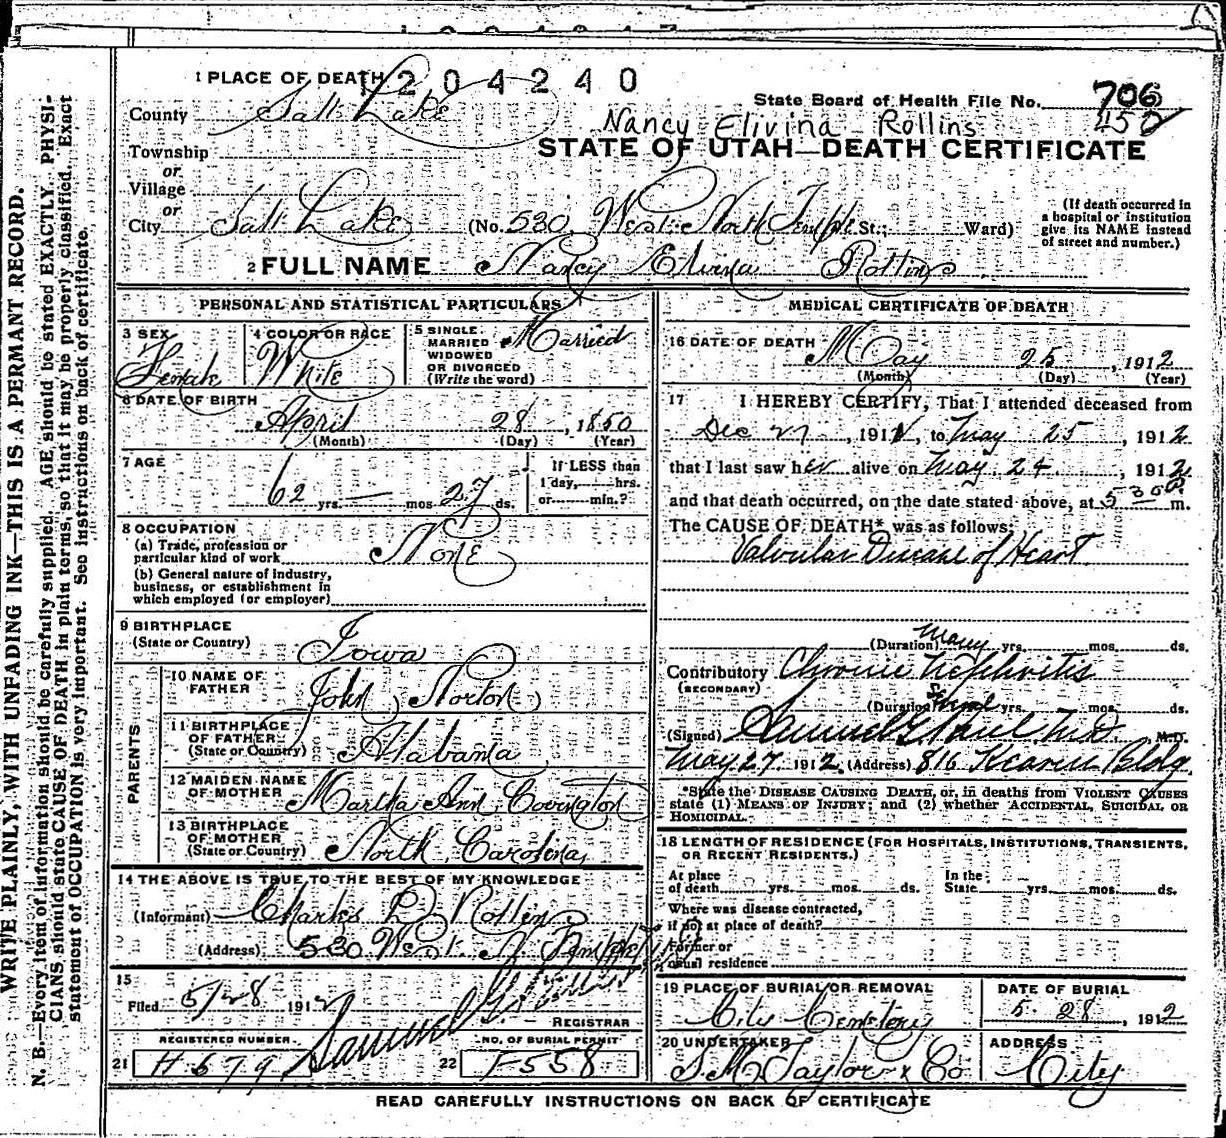 1204240
1 PLACE OF DEATH
County Salt Lake
State Board of Health File No. 706
450
Nancy Elivina Rollins
STATE OF UTAH—DEATH CERTIFICATE
Township
or
Village
or
City Salt Lake (No. 530 West North Temple St.; Ward)
(If death occurred in
a hospital or institution
give its NAME instead
of street and number.)
2 FULL NAME Nancy Elvina Rollins
PERSONAL AND STATISTICAL PARTICULARS
3 SEX Female
4 COLOR OR RACE White
5 SINGLE
MARRIED
WIDOWED
OR DIVORCED
(Write the word) Married
6 DATE OF BIRTH
April 28, 1850
(Month) (Day) (Year)
7 AGE
62 yrs. — mos. 27 ds.
If LESS than
1 day, hrs.
or min.?
8 OCCUPATION
(a) Trade, profession or
particular kind of work None
(b) General nature of industry,
business, or establishment in
which employed (or employer)
9 BIRTHPLACE
(State or Country) Iowa
PARENTS
10 NAME OF
FATHER John Norton
11 BIRTHPLACE
OF FATHER
(State or Country) Alabama
12 MAIDEN NAME
OF MOTHER Martha Ann Covington
13 BIRTHPLACE
OF MOTHER
(State or Country) North Carolina
14 THE ABOVE IS TRUE TO THE BEST OF MY KNOWLEDGE
(Informant) Charles D Rollins
(Address) 530 West N. Temple
15
Filed 5/28 1912
REGISTRAR
REGISTERED NUMBER
21 H 679
NO. OF BURIAL PERMIT
22 F558
MEDICAL CERTIFICATE OF DEATH
16 DATE OF DEATH
May 25, 1912
(Month) (Day) (Year)
17 I HEREBY CERTIFY, That I attended deceased from
Dec 27, 1911, to May 25, 1912
that I last saw her alive on May 24, 1912
and that death occurred, on the date stated above, at 5 30 P m.
The CAUSE OF DEATH* was as follows:
Valvular Disease of Heart
(Duration) many yrs. mos. ds.
Contributory Chronic Nephritis
(SECONDARY)
(Duration) yrs. mos. ds.
(Signed) Samuel G Paul M.D.
May 27 1912 (Address) 816 Kearns Bldg.
*State the DISEASE CAUSING DEATH, or, in deaths from VIOLENT CAUSES
state (1) MEANS OF INJURY; and (2) whether ACCIDENTAL, SUICIDAL OR
HOMICIDAL.
18 LENGTH OF RESIDENCE (FOR HOSPITALS, INSTITUTIONS, TRANSIENTS,
OR RECENT RESIDENTS.)
At place
of death yrs. mos. ds.
In the
State yrs. mos. ds.
Where was disease contracted,
if not at place of death?
Former or
usual residence
19 PLACE OF BURIAL OR REMOVAL
City Cemetery
DATE OF BURIAL
5 28, 1912
20 UNDERTAKER
S.M. Taylor & Co
ADDRESS
City
READ CAREFULLY INSTRUCTIONS ON BACK OF CERTIFICATE
WRITE PLAINLY, WITH UNFADING INK—THIS IS A PERMANT RECORD.
N. B.—Every item of information should be carefully supplied. AGE should be stated EXACTLY. PHYSI-
CIANS should state CAUSE OF DEATH in plain terms, so that it may be properly classified. Exact
statement of OCCUPATION is very important. See instructions on back of certificate.